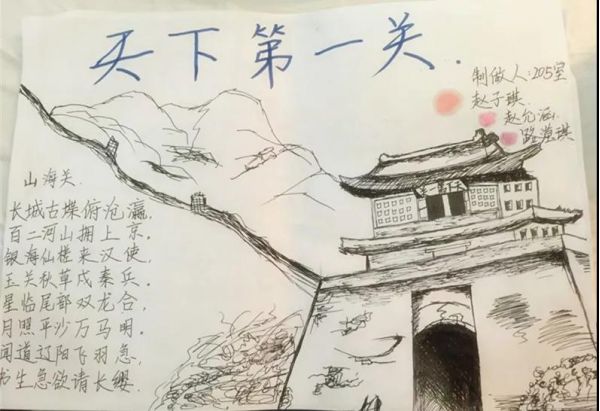 天下第一关.
制做人:205室
赵子琪.
赵允涵.
路滢琪
山海关.
长城古堞俯沧瀛.
百二河山拥上京.
银海仙槎来汉使,
玉关秋草戍秦兵.
星临尾部双龙合,
月照平沙万马明.
闻道辽阳飞羽急,
书生急欲请长缨.